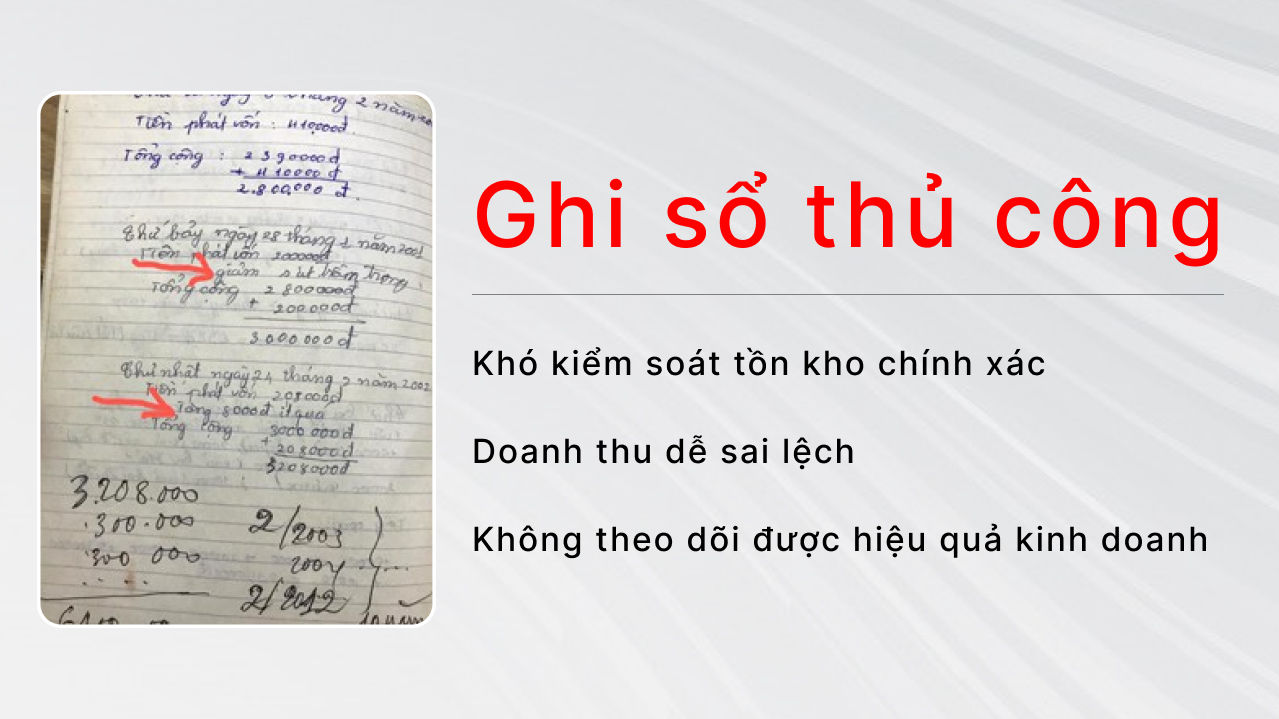 Tiền phát vốn : 410,000đ.
Tổng cộng : 2390000đ
+ 410000đ
2.800,000 đ.
Thứ bảy ngày 28 tháng 2 năm 2001
Tiền phát vốn 200000đ
giảm sút trầm trọng.
Tổng cộng 2800000đ
+ 200.000đ
3000000đ
Chủ nhật ngày 24 tháng 2 năm 2002
Tiền phát vốn 208000đ
Tăng 8000đ ít quá
Tổng cộng 3000000đ
+ 208000đ
3208000đ
3.208.000
.300.000
300 000
2/2003
2004
2/2012
Ghi sổ thủ công
Khó kiểm soát tồn kho chính xác
Doanh thu dễ sai lệch
Không theo dõi được hiệu quả kinh doanh